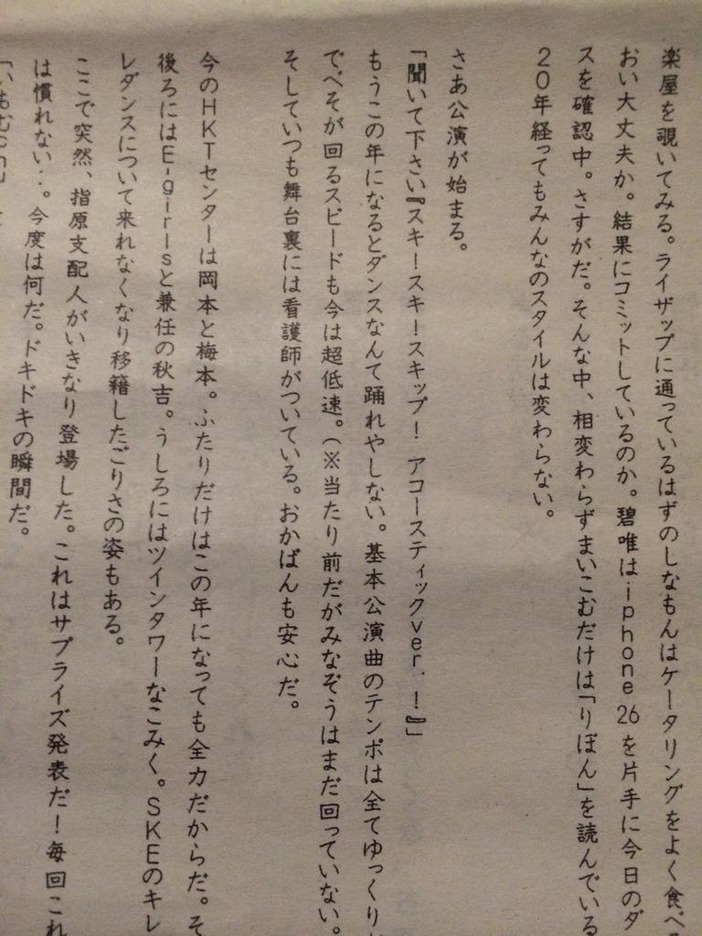 楽屋を覗いてみる。ライザップに通っているはずのしなもんはケータリングをよく食べ
おい大丈夫か。結果にコミットしているのか。碧唯はiphone26を片手に今日のダ
スを確認中。さすがだ。そんな中、相変わらずまいこむだけは「りぼん」を読んでいる
20年経ってもみんなのスタイルは変わらない。
さあ公演が始まる。
「聞いて下さい『スキ！スキ！スキップ！アコースティックver.！』」
もうこの年になるとダンスなんて踊れやしない。基本公演曲のテンポは全てゆっくり
でへそが回るスピードも今は超低速。(※当たり前だがみなぞうはまだ回っていない。
そしていつも舞台裏には看護師がついている。おかぱんも安心だ。
今のHKTセンターは岡本と梅本。ふたりだけはこの年になっても全力だからだ。そ
後ろにはE-girlsと兼任の秋吉。うしろにはツインタワーなこみく。SKEのキレ
レダンスについて来れなくなり移籍したごりさの姿もある。
ここで突然、指原支配人がいきなり登場した。これはサプライズ発表だ！毎回これ
は慣れない…。今度は何だ。ドキドキの瞬間だ。
「いもむchu